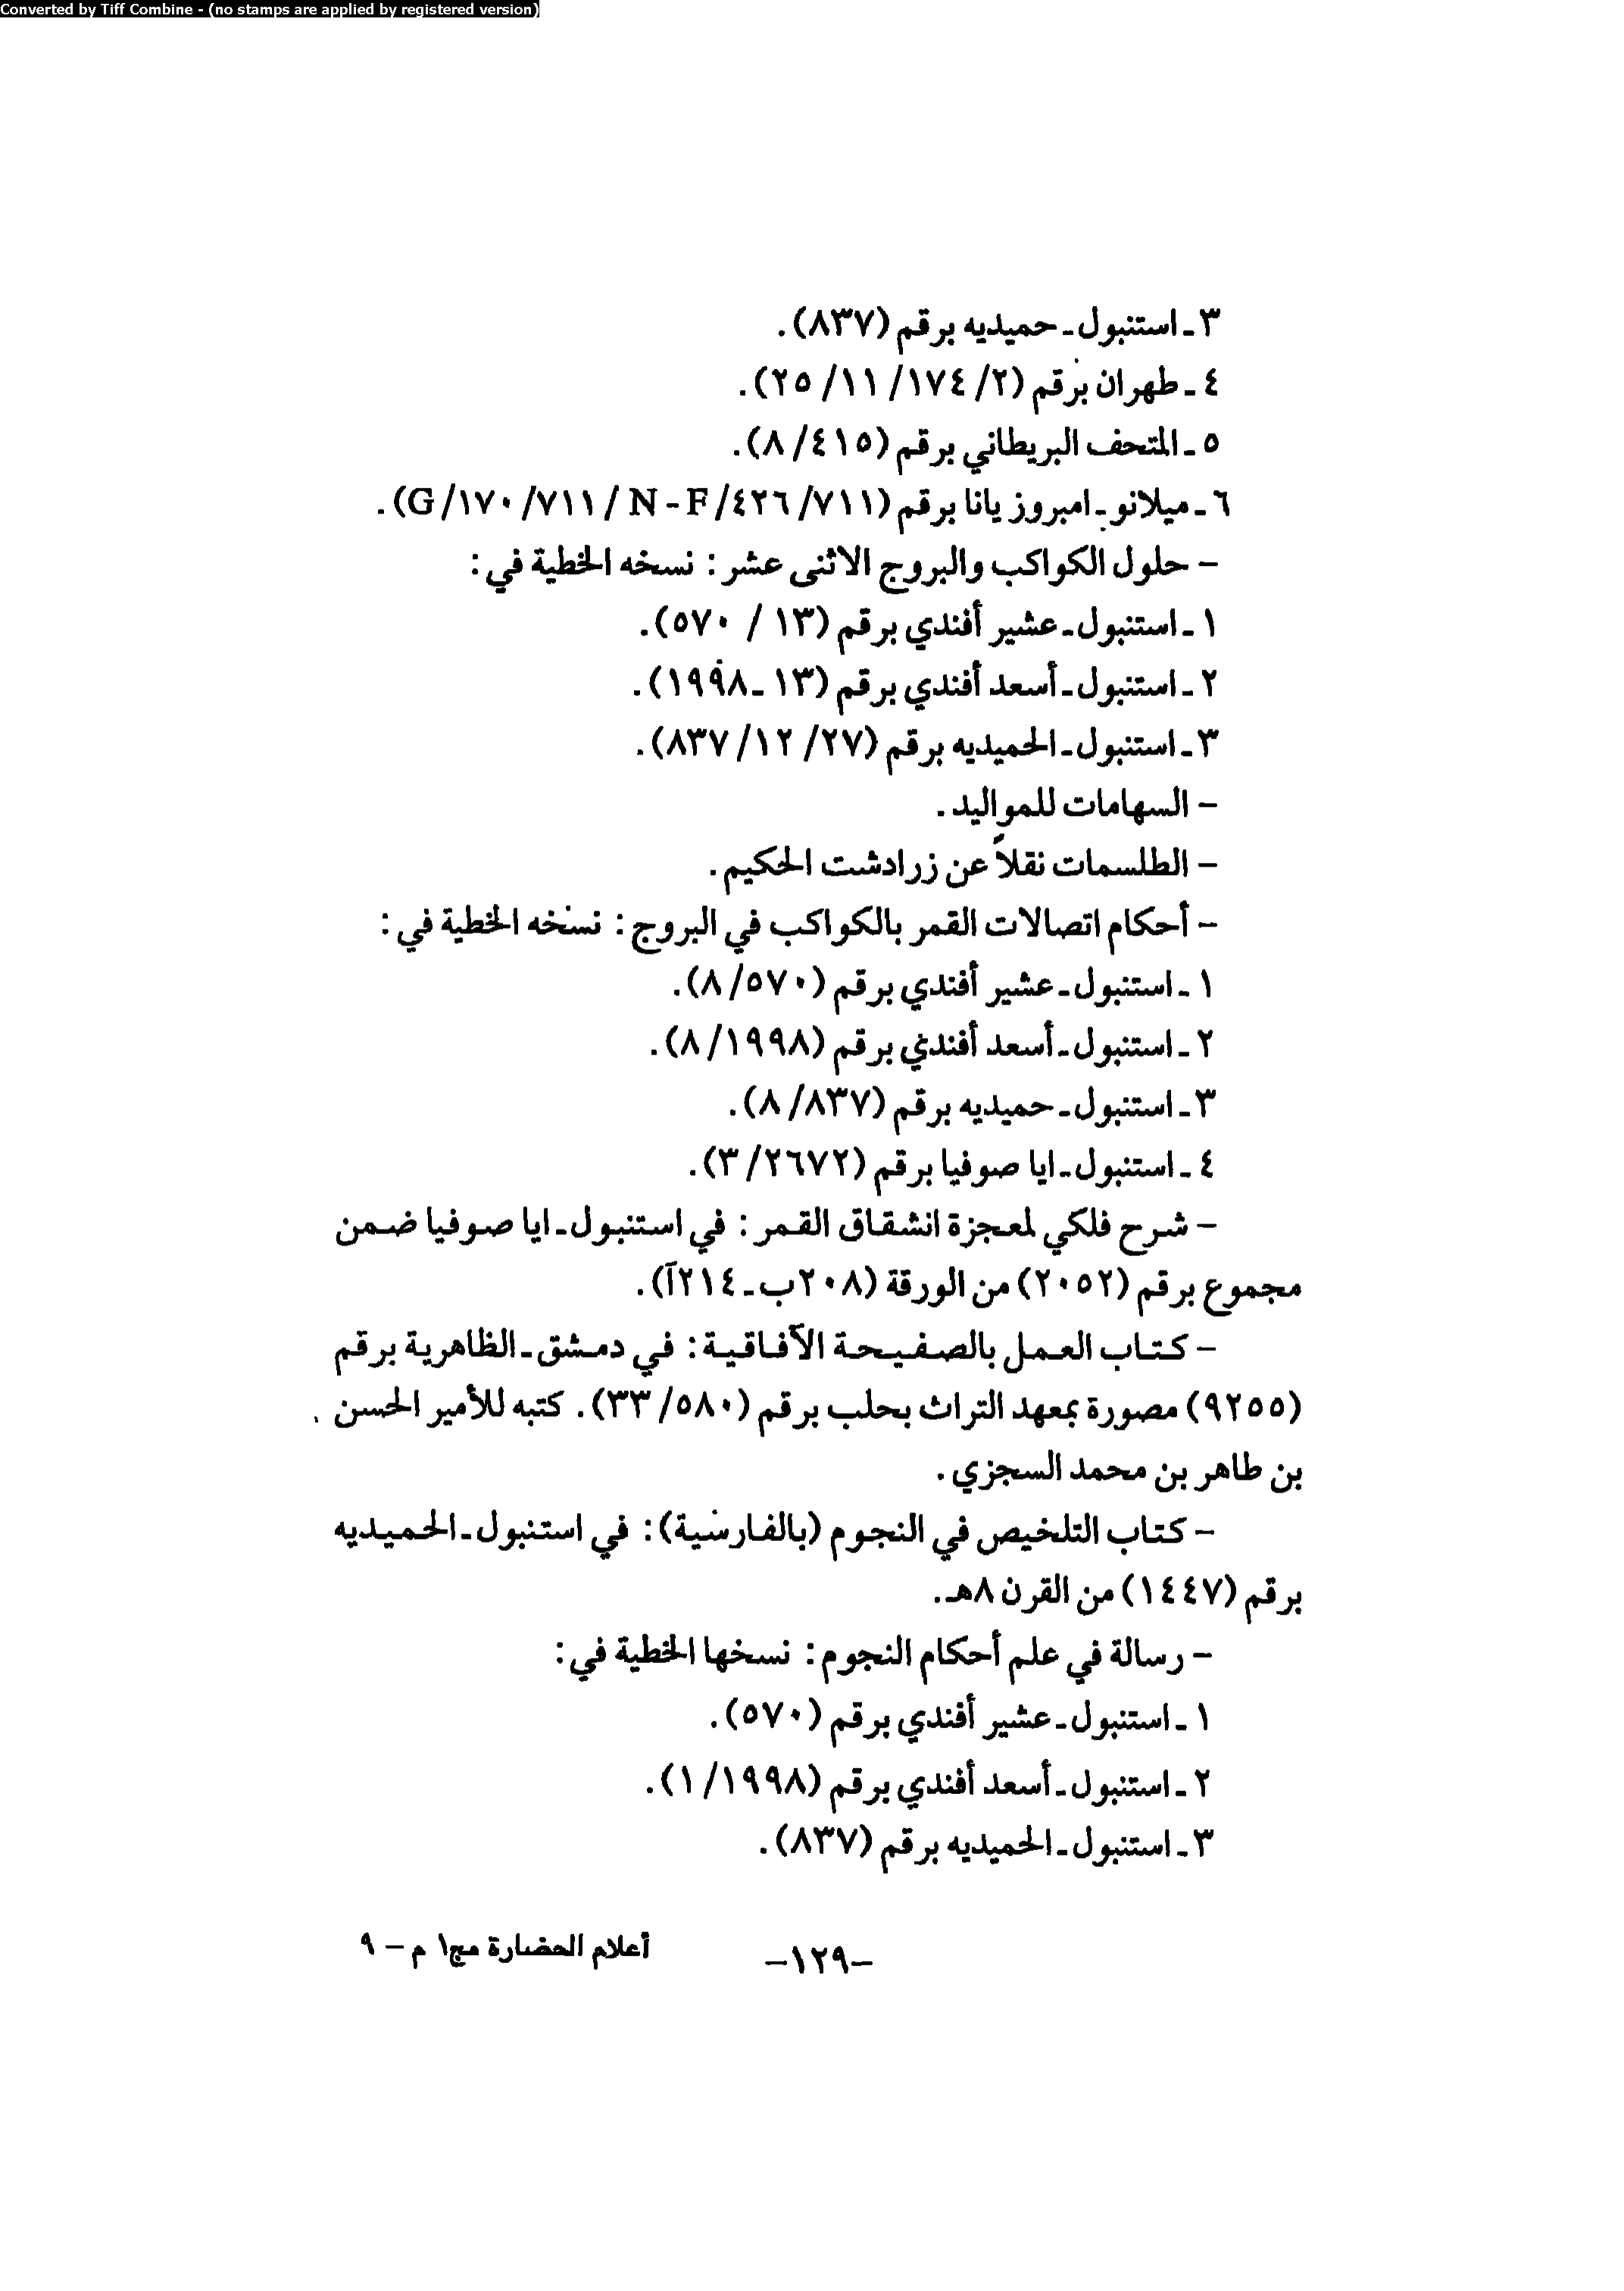 Converted by Tiff Combine - (no stamps are applied by registered version)
٣ ـ استنبول ـ حميديه برقم (٨٣٧).
٤ ـ طهران برقم (٢/ ١٧٤/ ١١/ ٢٥).
٥ ـ المتحف البريطاني برقم (٤١٥/ ٨).
٦ ـ ميلانو ـ امبروز يانا برقم (٧١١/ ٤٢٦/ N - F / ٧١١/ ١٧٠/ G).
– حلول الكواكب والبروج الاثنى عشر : نسخه الخطية في :
١ ـ استنبول ـ عشير أفندي برقم (١٣ / ٥٧٠).
٢ ـ استنبول ـ أسعد أفندي برقم (١٣ ـ ١٩٩٨).
٣ ـ استنبول ـ الحميديه برقم (٢٧/ ١٢/ ٨٣٧).
– السهامات للمواليد .
– الطلسمات نقلاً عن زرادشت الحكيم .
– أحكام اتصالات القمر بالكواكب في البروج : نسخه الخطية في :
١ ـ استنبول ـ عشير أفندي برقم (٥٧٠/ ٨).
٢ ـ استنبول ـ أسعد أفندي برقم (١٩٩٨/ ٨).
٣ ـ استنبول ـ حميديه برقم (٨٣٧/ ٨).
٤ ـ استنبول ـ ايا صوفيا برقم (٢٦٧٢/ ٣).
– شرح فلكي لمعجزة انشقاق القمر : في استنبول ـ ايا صوفيا ضمن
مجموع برقم (٢٠٥٢) من الورقة (٢٠٨ب ـ ٢١٤آ).
– كتاب العمل بالصفيحة الآفاقية : في دمشق ـ الظاهرية برقم
(٩٢٥٥) مصورة بمعهد التراث بحلب برقم (٥٨٠/ ٣٣). كتبه للأمير الحسن
بن طاهر بن محمد السجزي .
– كتاب التلخيص في النجوم (بالفارسية) : في استنبول ـ الحميديه
برقم (١٤٤٧) من القرن ٨هـ.
– رسالة في علم أحكام النجوم : نسخها الخطية في :
١ ـ استنبول ـ عشير أفندي برقم (٥٧٠).
٢ ـ استنبول ـ أسعد أفندي برقم (١٩٩٨/ ١).
٣ ـ استنبول ـ الحميديه برقم (٨٣٧).
–١٢٩–
أعلام الحضارة مج١ م – ٩